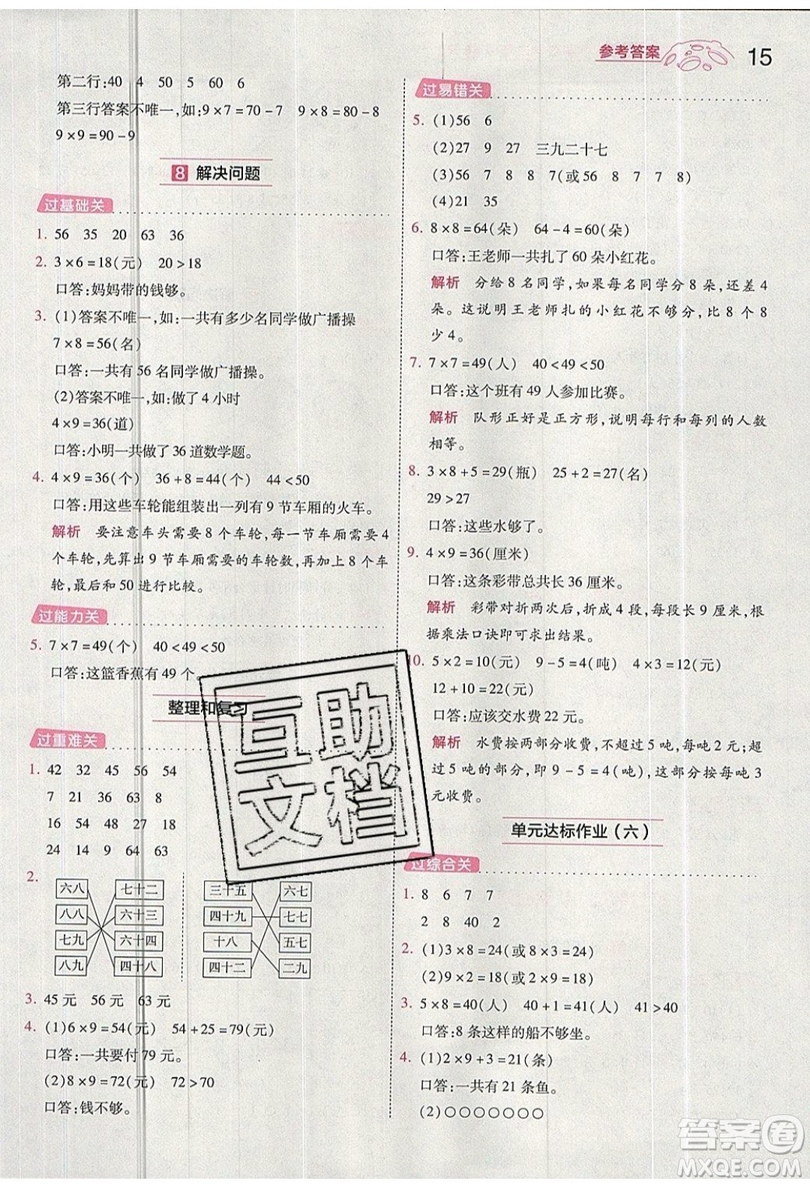 参考答案 15
第二行:40 4 50 5 60 6
第三行答案不唯一,如:9×7=70-7 9×8=80-8
9×9=90-9
8 解决问题
过基础关
1. 56 35 20 63 36
2. 3×6=18(元) 20>18
口答:妈妈带的钱够。
3. (1)答案不唯一,如:一共有多少名同学做广播操
7×8=56(名)
口答:一共有56名同学做广播操。
(2)答案不唯一,如:做了4小时
4×9=36(道)
口答:小明一共做了36道数学题。
4. 4×9=36(个) 36+8=44(个) 44<50
口答:用这些车轮能组装出一列有9节车厢的火车。
解析 要注意车头需要8个车轮,每一节车厢需要
4个车轮,先算出9节车厢的车轮数,再加8个车
轮,最后与50进行比较。
过能力关
5. 7×7=49(个) 40<49<50
口答:这篮香蕉有49个。
整理和复习
过重难关
1. 42 32 45 56 54
7 21 36 63 8
16 24 48 27 18
24 14 9 64 63
2.
六八 七十二 三十五 六七
八八 六十三 四十九 七七
七九 六十四 十八 五七
八九 四十八 四十二 二九
3. 45元 56元 63元
4. (1)6×9=54(元) 54+25=79(元)
口答:一共要付79元。
(2)8×9=72(元) 72>70
口答:钱不够。
过易错关
5. (1)56 6
(2)27 9 27 三九二十七
(3)56 7 8 8 7(或56 8 7 7 8)
(4)21 35
6. 8×8=64(朵) 64-4=60(朵)
口答:王老师一共扎了60朵小红花。
解析 分给8名同学,如果每名同学分8朵,还差4
朵。这说明王老师扎的小红花不够分,比8个8
少4。
7. 7×7=49(人) 40<49<50
口答:这个班有49人参加比赛。
解析 队形正好是正方形,说明每行和每列的人数
相等。
8. 3×8+5=29(瓶) 25+2=27(名)
29>27
口答:这些水够了。
9. 4×9=36(厘米)
口答:这条彩带总共长36厘米。
解析 彩带对折两次后,折成4段,每段长9厘米,根
据乘法口诀即可求出结果。
10. 5×2=10(元) 9-5=4(吨) 4×3=12(元)
12+10=22(元)
口答:应该交水费22元。
解析 水费按两部分收费,不超过5吨,每吨2元,超
过5吨的部分,即9-5=4(吨),这部分按每吨3
元收费。
单元达标作业(六)
过综合关
1. 8 6 7 7
2 8 40 2
2. (1)3×8=24(或8×3=24)
(2)9×2=18(或2×9=18)
3. 5×8=40(人) 40+1=41(人) 41>40
口答:8条这样的船不够坐。
4. (1)2×9+3=21(条)
口答:一共有21条鱼。
(2)○○○○○○○
互助
文档
答案圈
MXQE.COM